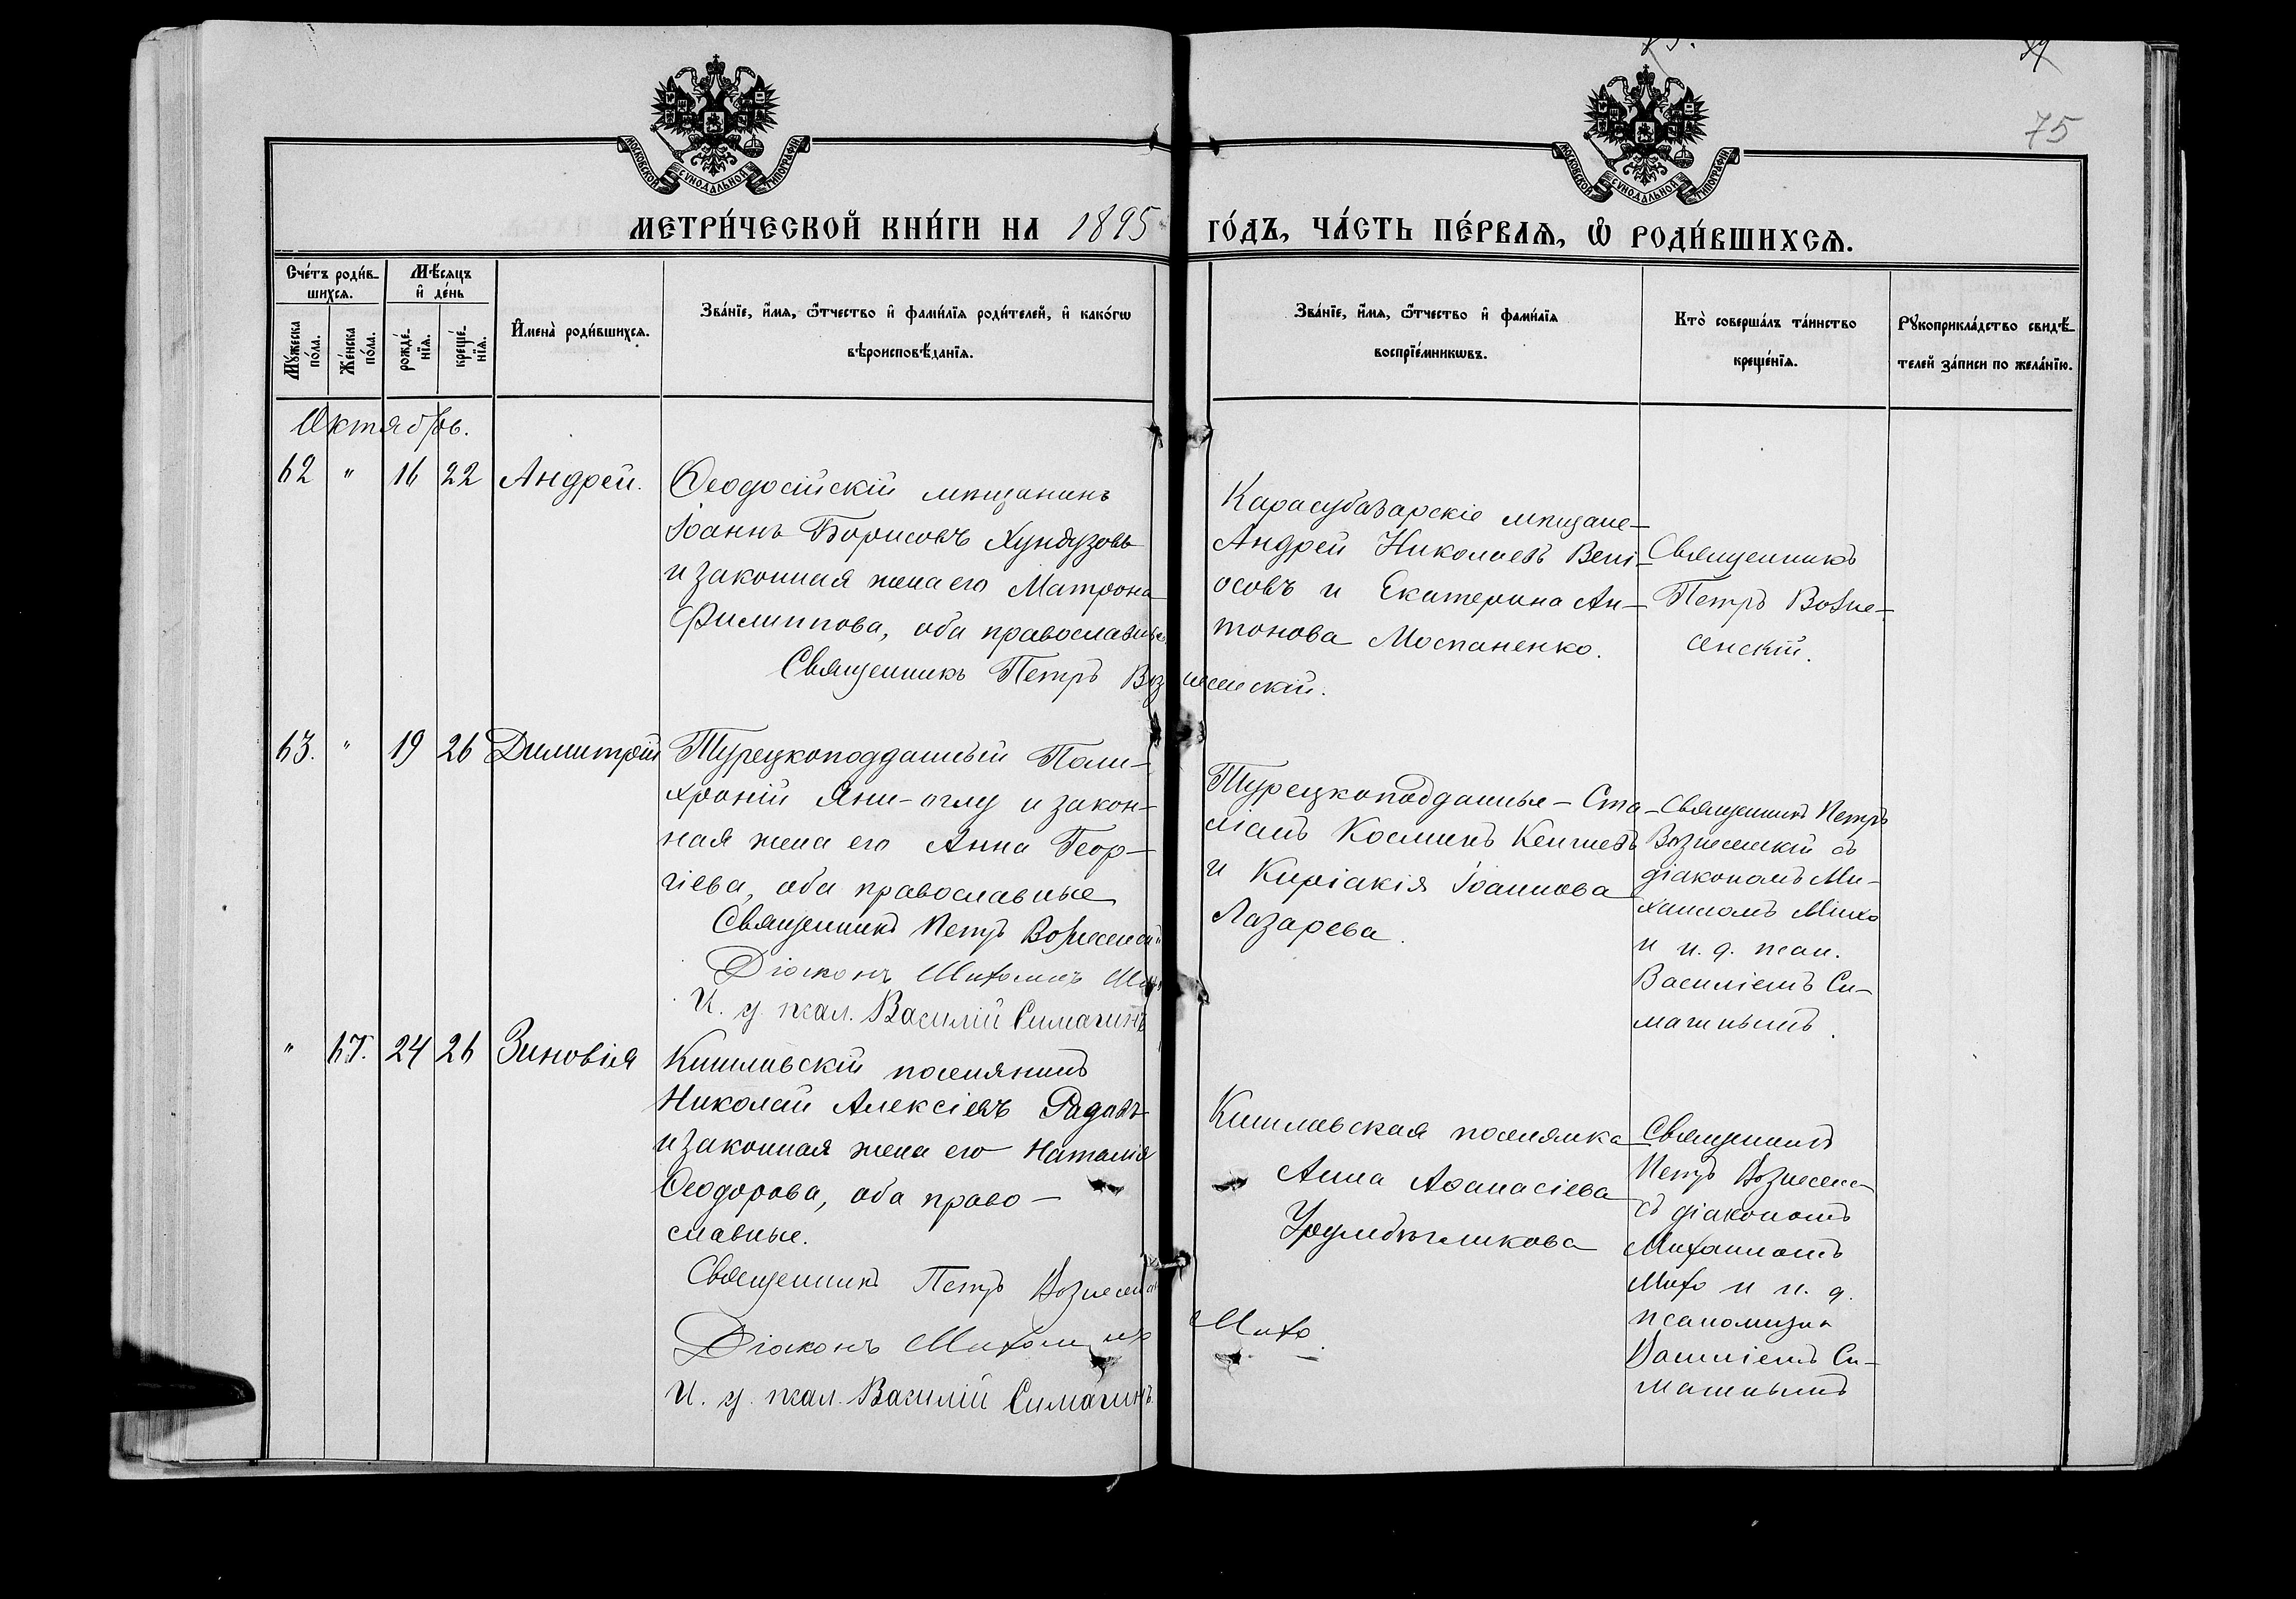 75
МОСКОВСКОЙ СѴНОДАЛЬНОЙ ТИПОГРАФІИ
МОСКОВСКОЙ СѴНОДАЛЬНОЙ ТИПОГРАФІИ
МЕТРИ́ЧЕСКОЙ КНИ́ГИ НА 1895 ГО́ДЪ, ЧА́СТЬ ПЕ́РВАѦ, Ѡ҆ РОДИ́ВШИХСѦ.
Сче́тъ роди́в-
шихсѧ.
Мꙋ́жеска по́ла.
Же́нска по́ла.
Мѣ́сѧцъ
и҆ де́нь
рожде́-
нїѧ.
креще́-
нїѧ.
И҆мена̀ роди́вшихсѧ.
Зва́нїе, и҆́мѧ, ѻ҆́тчество и҆ фами́лїѧ роди́телей, и҆ како́гѡ
вѣроисповѣ́данїѧ.
Зва́нїе, и҆́мѧ, ѻ҆́тчество и҆ фами́лїѧ
воспрїе́мникѡвъ.
Кто̀ соверша́лъ та́инство
креще́нїѧ.
Рꙋкоприкла́дство свидѣ́-
телей за́писи по жела́нїю.
Октябрь.
62 " 16 22 Андрей.
Ѳеодосійскій мѣщанинъ
Іоаннъ Борисовъ Хундузовъ
и законная жена его Матрона
Филиппова, оба православные
Священникъ Петръ Вознесенскій.
Карасубазарскіе мѣщане-
Андрей Николаевъ Вені-
осовъ и Екатерина Ан-
тонова Моспаненко.
Священникъ
Петръ Возне-
сенскій.
63. " 19 26 Димитрій
Турецкоподданный Поли-
хроній Яни-оглу и закон-
ная жена его Анна Геор-
гіева, оба православные
Священникъ Петръ Вознесенскій
Діаконъ Михаилъ
И. д. псал. Василій Симагинъ
Турецкоподданные - Ста-
міатъ Косминъ
и Киріакія Іоаннова
Лазарева.
Священникъ Петръ
Вознесенскій съ
діакономъ Ми-
хаиломъ Михо
и и. д. псал.
Василіемъ Си-
магинымъ.
" 67. 24 26 Зиновія
Кишлавскій поселянинъ
Николай Алексіевъ Радовъ
и законная жена его Наталія
Ѳеодорова, оба право-
славные.
Священникъ Петръ Вознесенск
Діаконъ Михаилъ Михо.
И. д. псал. Василій Симагинъ.
Кишлавская поселянка
Анна Аѳанасіева
Священникъ
Петръ Вознесенс
съ діакономъ
Михаиломъ
Михо и и. д.
псаломщика
Василіемъ Си-
магинымъ